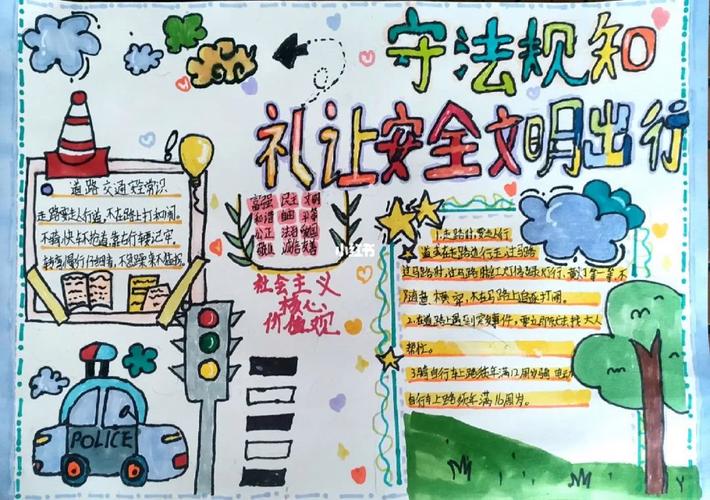 守法规知
礼让安全文明出行
道路交通安全常识
走路要走人行道,不在路上打和闹。
不骑快车不抢道,靠右行要记牢。
富强 民主 文明
和谐 自由 平等
公正 法治 爱国
敬业 诚信 友善
小红书
社会主义
核心
价值观
1.走路时,要走人行
过马路时,过马路时红灯停绿灯行,黄灯等一等,不
随意横穿,不在马路上追逐打闹。
2.在道路上遇到突发事件,要立即去找大人
帮忙。
3.骑自行车上路须年满12周岁骑电动
自行车上路须年满16周岁。
POLICE